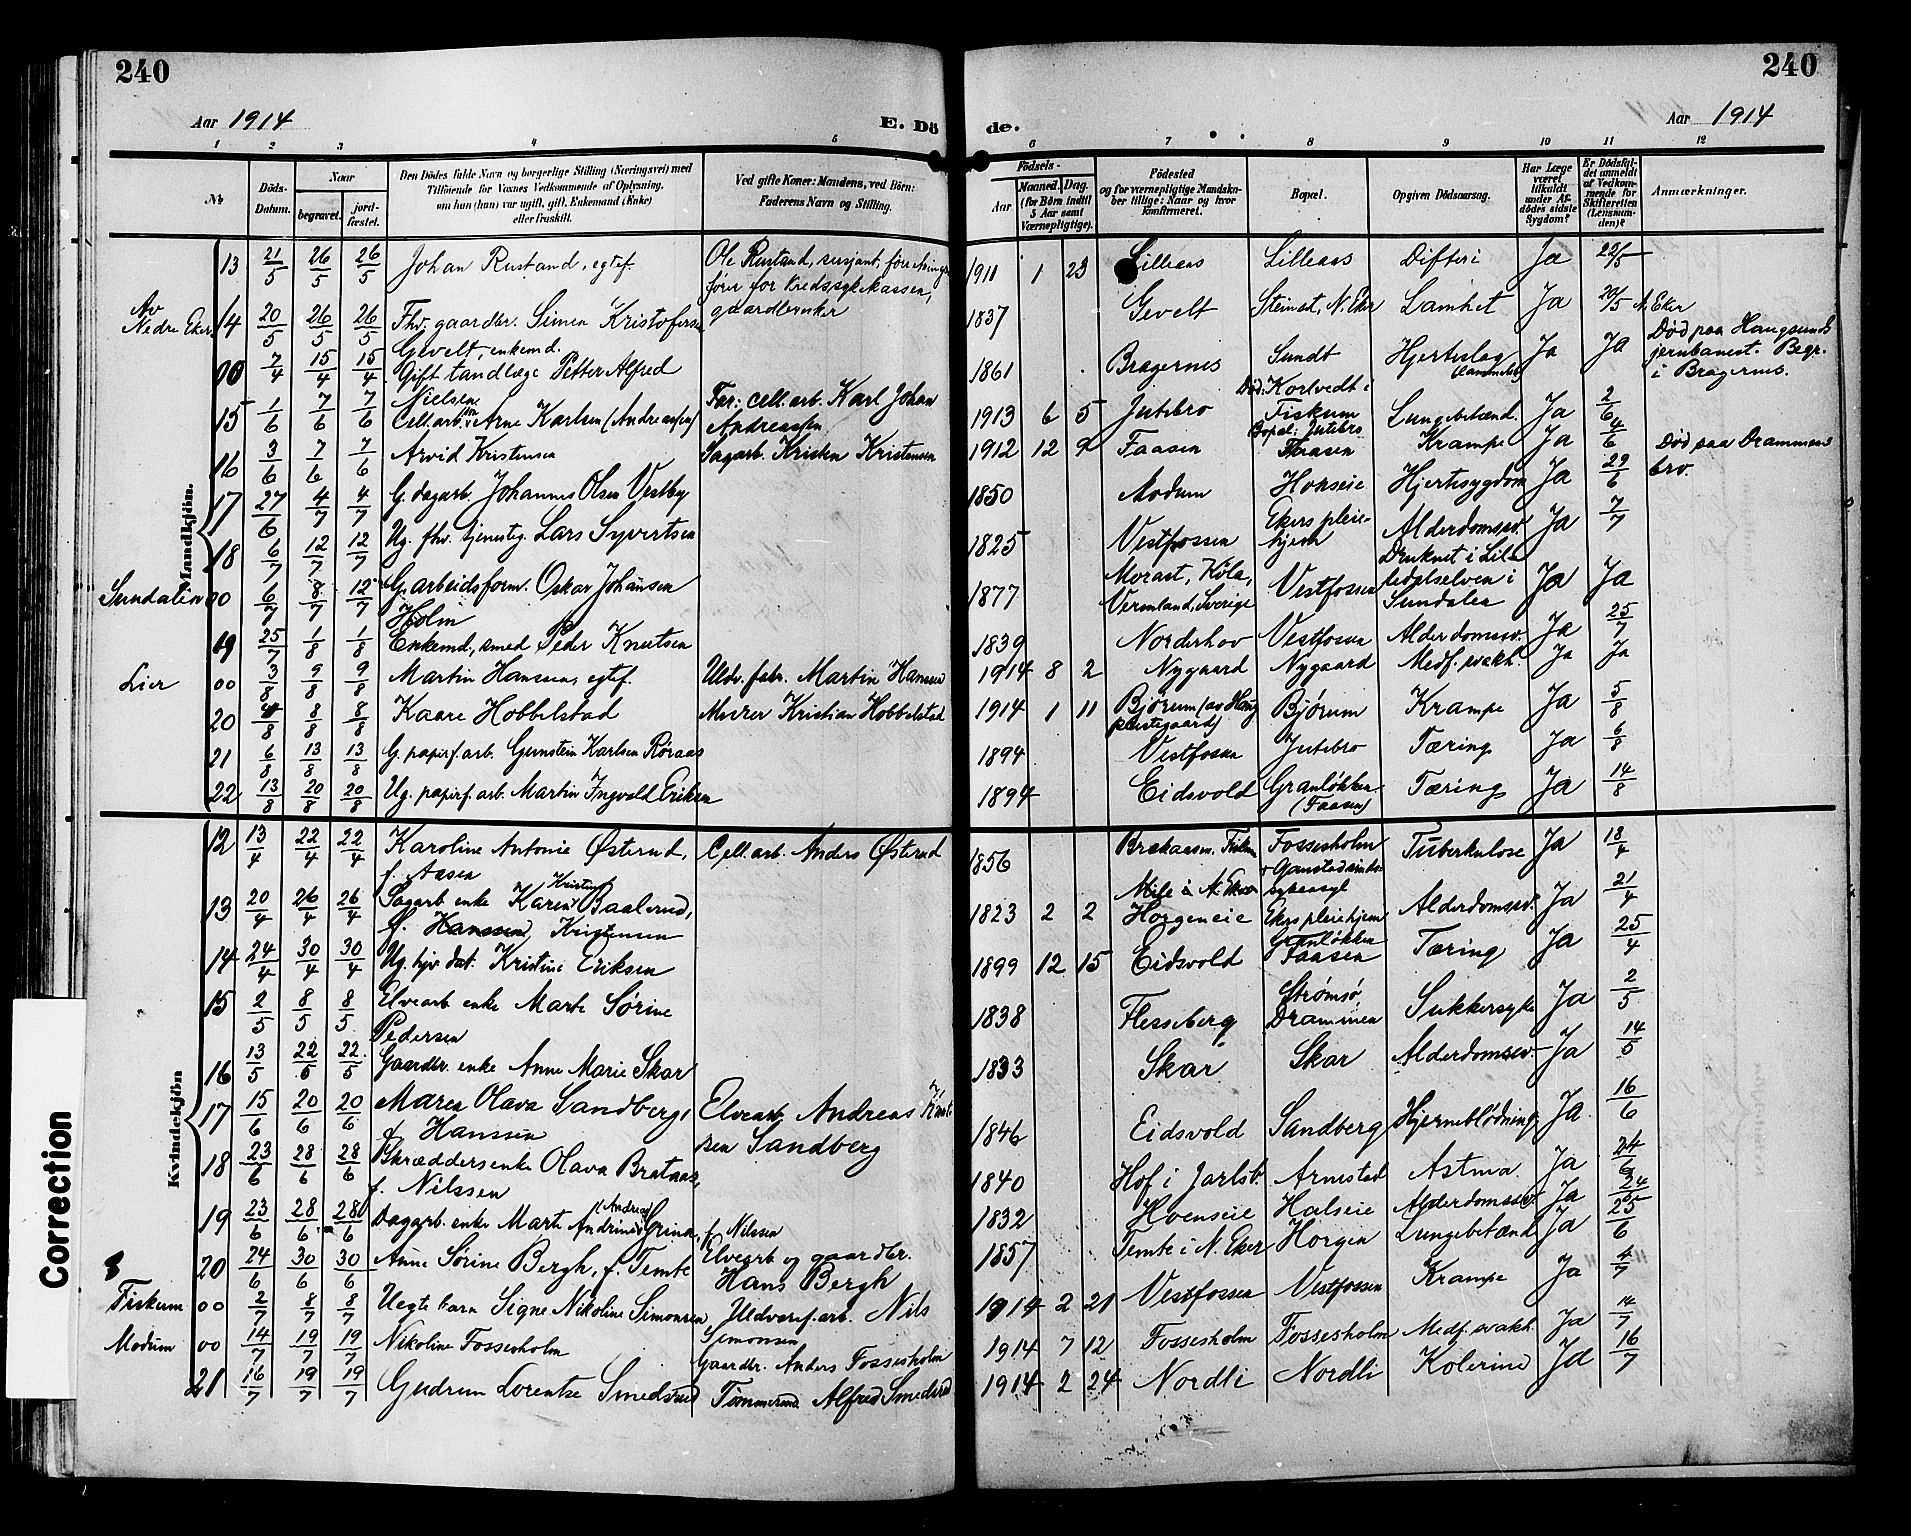 240
240
Aar 1914
E. Dö
de.
Aar 1914
1 2 3 4 5 6 7 8 9 10 11 12
№
Döds-Datum.
Naar
begravet.
jord-fæstet.
Den Dödes fulde Navn og borgerlige Stilling (Næringsvei) med
Tilföiende for Voxnes Vedkommende af Oplysning,
om han (hun) var ugift, gift, Enkemand (Enke)
eller fraskilt.
Ved gifte Koner: Mandens, ved Börn:
Faderens Navn og Stilling.
Födsels-
Aar
Maaned. Dag.
(for Börn indtil
5 Aar samt
Værnepligtige).
Födested
og for værnepligtige Mandska-
ber tillige: Naar og hvor
konfirmeret.
Bopæl.
Opgiven Dödsaarsag.
Har Læge
været
tilkaldt
under Af-
dödes sidste
Sygdom?
Er Dödsfal-
det anmeldt
af Vedkom-
mende for
Skifteretten
(Lensman-
den)?
Anmærkninger.
Mandkjön.
13 21/5 26/5 26/5 Johan Rustand, egtef. Ole Rustand, sersjant, forretnings- 1911 1 23 Lilleaas Lilleaas Difteri Ja 22/5
fører for Kredssykekassen,
gaardbruker
Av Nedre Eker 14 20/5 26/5 26/5 Fhv. gaardbr. Simen Kristofersen 1837 Gevelt Steinset, N. Eker Lamhet Ja 20/5 N. Eker
Gevelt, enkemd.
00 7/4 15/4 15/4 Gift tandlæge Petter Alfred 1861 Bragernes Sundt Hjerteslag Ja Ja Død paa Hougsunds
Nielsen jernbanest. Begr.
i Bragernes.
15 1/6 7/6 7/6 Cell.arb. Arne Karlsen (Andreassen) Far: cell.arb. Karl Johan 1913 6 5 Jutebro Død: Kortvedt i Lungebetænd. Ja 2/6
Andreassen Fiskum
Bopæl: Jutebro
16 3/6 7/6 7/6 Arvid Kristensen Sagarb. Kristen Kristensen 1912 12 9 Faasen Faasen Krampe Ja 4/6 Død paa Drammens
bro.
17 27/6 4/7 4/7 G. dagarb. Johannes Olsen Vestby 1850 Modum Hokseie Hjertesygdom Ja 29/6
18 6/7 12/7 12/7 Ug. fhv. tjenesteg. Lars Syvertsen 1825 Vestfossen Ekers pleie- Alderdomssv. Ja 7/7
hjem
Sundalen 00 6/7 8/7 12/7 G. arbeidsform. Oskar Johansen 1877 Morast, Köla, Vestfossen Druknet i Lille- Ja Ja
Holm Vermland, Sverige dalselven i
Sundalen
19 25/7 1/8 1/8 Enkemd, smed Peder Knutsen 1839 Norderhov Vestfossen Alderdomssv. Ja 25/7
Lier 00 3/8 9/8 9/8 Martin Hansen, egtef. Uldv. fabr. Martin Hansen 1914 8 2 Nygaard Nygaard Medf. svakh. Ja Ja
20 4/8 8/8 8/8 Kaare Hobbelstad Murer Kristian Hobbelstad 1914 1 11 Bjørum (av Haug Bjørum Krampe Ja 5/8
prestegaard)
21 6/8 13/8 13/8 G. papirf. arb. Gunstein Karlsen Røraas 1894 Vestfossen Jutebro Tæring Ja 6/8
22 13/8 20/8 20/8 Ug. papirf. arb. Martin Ingvald Eriksen 1894 Eidsvold Granløkken Tæring Ja 14/8
(Faasen)
Kvindekjön
12 13/4 22/4 22/4 Karoline Antonie Østerud, Cell.arb. Anders Østerud 1856 Fossesholm Tuberkulose Ja 18/4
f. Aasen
13 20/4 26/4 26/4 Sagarb enke Karen Kristine Baalerud, 1823 2 2 Horgeneie Ekers pleiehjem Alderdomssv. Ja 21/4
f. Hanssen, Kristensen
14 24/4 30/4 30/4 Ug. hjv. dat. Kristine Eriksen 1899 12 15 Eidsvold Granløkken Tæring Ja 25/4
Faasen
15 2/5 8/5 8/5 Elvearb enke Marte Sørine 1838 Flesseberg Strømsø, Sukkersyke Ja 2/5
Pedersen Drammen
16 13/5 22/5 22/5 Gaardbr. enke Anne Marie Skar 1833 Skar Skar Alderdomssv. Ja 14/5
17 15/6 20/6 20/6 Maren Olava Sandberg, Elvearb. Andreas 1846 Eidsvold Sandberg Hjerneblødning Ja 16/6
f. Hanssen sen Sandberg
18 23/6 28/6 28/6 Skræddersenke Olava Brataas, 1840 Hof i Jarlsb. Arnestad Astma Ja 24/6
f. Nilssen
19 23/6 28/6 28/6 Dagarb. enke Marte Andrine (Andrea) Grina, f. Nilssen 1832 Hoenseie Halseie Alderdomssv. Ja 24/6
20 24/6 30/6 30/6 Anne Sørine Bergh, f. Temte Elvearb og gaardbr. 1857 Temte i N. Eker Horgen Lungebetænd Ja 25/6
Hans Bergh
Fiskum 00 2/7 8/7 8/7 Uegte barn Signe Nikoline Simonsen Uldvaref. arb. Nils 1914 2 21 Vestfossen Vestfossen Krampe Ja 4/7
Simonsen
Modum 00 14/7 19/7 19/7 Nikoline Fossesholm Gaardbr. Anders Fossesholm 1914 7 12 Fossesholm Fossesholm Medf. svakh. Ja 14/7
21 16/7 19/7 19/7 Gudrun Lorentse Smedsrud Tømmermd. Alfred Smedsrud 1914 2 24 Nordli Nordli Kolerine Ja 16/7
Correction